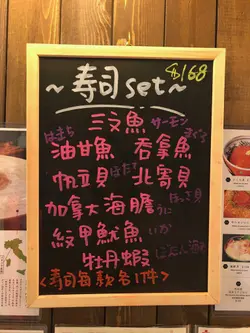 $168
~寿司set~
三文魚 サーモン
はまち まぐろ
油甘魚 吞拿魚
ほたて
帆立貝 北寄貝
ほっき貝
加拿大海膽 うに
紋甲魷魚 いか
牡丹蝦
<寿司每款各1件>